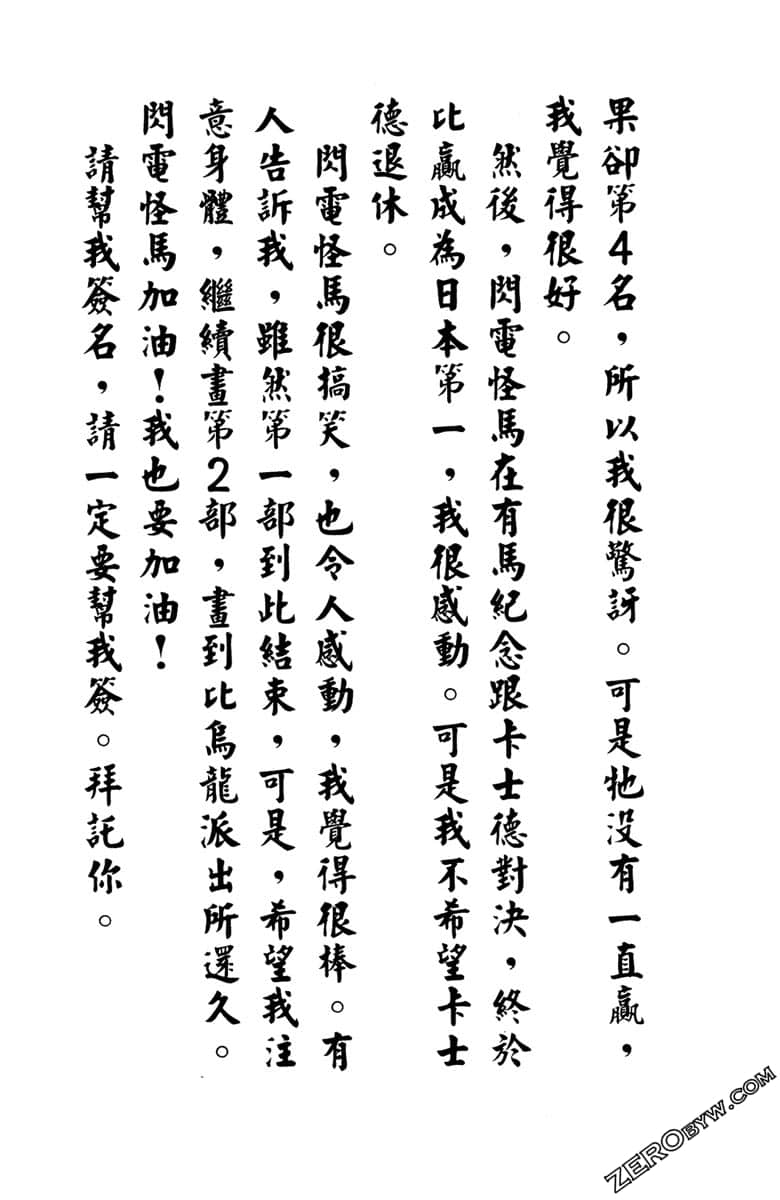 果卻第4名，所以我很驚訝。可是牠沒有一直贏，
我覺得很好。
然後，閃電怪馬在有馬紀念跟卡士德對決，終於
比贏成為日本第一，我很感動。可是我不希望卡士
德退休。
閃電怪馬很搞笑，也令人感動，我覺得很棒。有
人告訴我，雖然第一部到此結束，可是，希望我注
意身體，繼續畫第2部，畫到比烏龍派出所還久。
閃電怪馬加油！我也要加油！
請幫我簽名，請一定要幫我簽。拜託你。
ZEROBYW.COM